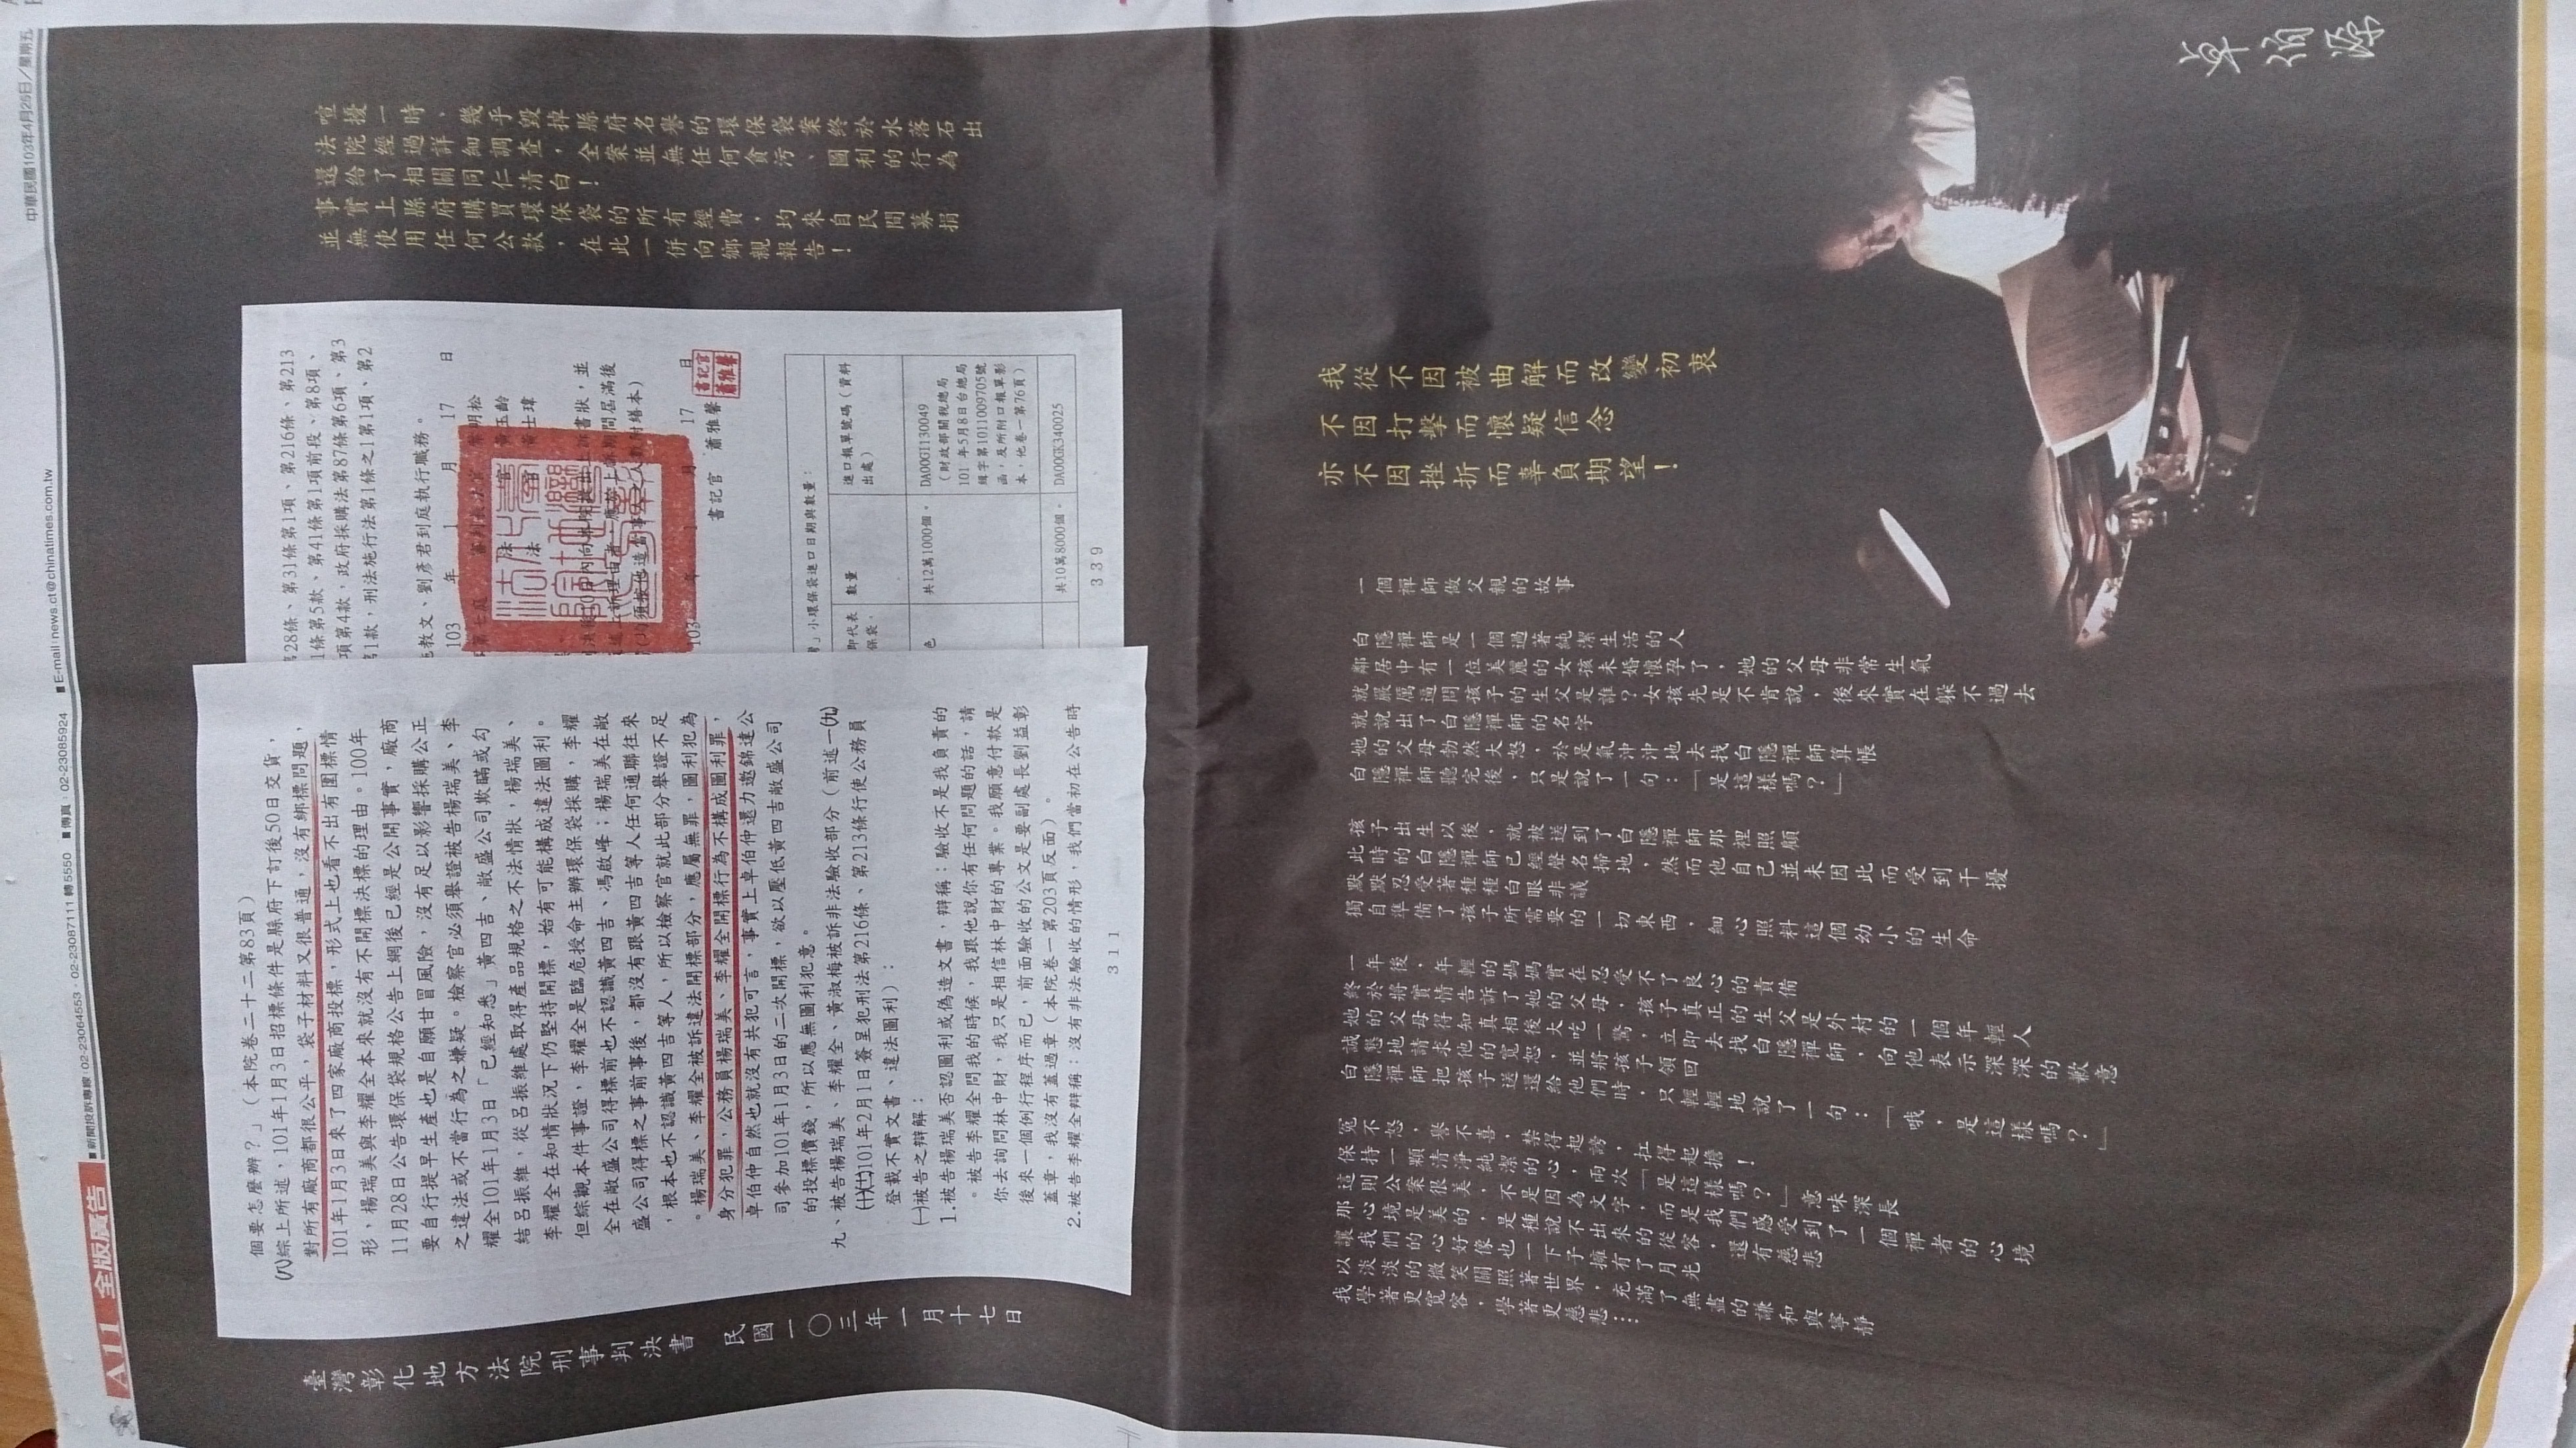 A11 全版廣告
■新聞投訴專線:02-23064553・02-23087111 轉 5550 ■傳真:02-23085924 ■E-mail:news.ct@chinatimes.com.tw
中華民國103年4月25日/星期五
喧擾一時、幾乎毀掉縣府名譽的環保袋案終於水落石出
法院經過詳細調查,全案並無任何貪污、圖利的行為
還給了相關同仁清白!
事實上縣府購買環保袋的所有經費,均來自民間募捐
並無使用任何公款,在此一併向鄉親報告!
臺灣彰化地方法院刑事判決書
民國一〇三年一月十七日
個要怎麼辦?」(本院卷二十二第83頁)
(八)綜上所述,101年1月3日招標條件是縣府下訂後50日交貨,
對所有廠商都很公平,袋子材料又很普通,沒有綁標問題,
101年1月3日來了四家廠商投標,形式上也看不出有圍標情
形,楊瑞美與李耀全本來就沒有不開標決標的理由。100年
11月28日公告環保袋規格公告上網後已經是公開事實,廠商
要自行提早生產也是自願甘冒風險,沒有足以影響採購公正
之違法或不當行為之嫌疑。檢察官必須舉證被告楊瑞美、李
耀全101年1月3日「已經知悉」黃四吉、敵盛公司欺瞞或勾
結呂振維,從呂振維處取得產品規格之不法情狀,楊瑞美、
李耀全在知情狀況下仍堅持開標,始有可能構成違法圖利。
但綜觀本件事證,李耀全是臨危授命主辦環保袋採購,李耀
全在敵盛公司得標前也不認識黃四吉、馮啟峰;楊瑞美在敵
盛公司得標之事前事後,都沒有跟黃四吉等人任何通聯往來
,根本也不認識黃四吉等人,所以檢察官就此部分舉證不足
。楊瑞美、李耀全被訴違法開標部分,應屬無罪,圖利犯為
身分犯罪,公務員楊瑞美、李耀全開標行為不構成圖利罪,
卓伯仲自然也就沒有共犯可言,事實上卓伯仲還力邀錦達公
司參加101年1月3日的二次開標,欲以壓低黃四吉敵盛公司
的投標價錢,所以應無圖利犯意。
九、被告楊瑞美、李耀全、黃淑梅被訴非法驗收部分(前述一(九)
101年2月1日簽呈犯刑法第216條、第213條行使公務員
登載不實文書、違法圖利):
(一)被告之辯解:
1.被告楊瑞美否認圖利或偽造文書,辯稱:驗收不是我負責的
。被告李耀全問我的時候,我跟他說你有任何問題的話,請
你去詢問林中財,我只是相信林中財的專業。我願意付款是
後來一個例行程序而已,前面驗收的公文是要副處長劉益彰
蓋章,我沒有蓋過章(本院卷一第203頁反面)。
2.被告李耀全辯稱:沒有非法驗收的情形,我們當初在公告時
311
28條、第31條第1項、第216條、第213
1條第5款、第41條第1項前段、第8項、
項第4款,政府採購法第87條第6項、第3
1款,刑法施行法第1條之1第1項、第2
教文、劉彥君到庭執行職務。
103 年 1 月 17 日
103 年 月 17 日
書記官 蕭雅馨
書記官蕭雅馨
」小環保袋進口日期與數量:
數量
進口報單號碼(資料出處)
共12萬1000個。
DA00G1130049
(財政部關稅總局
101年5月8日台總局
緝字第1011009705號
函,及所附口報單影
本,他卷一第76頁)
共10萬8000個。
DA00GK340025
339
我從不因被曲解而改變初衷
不因打擊而懷疑信念
亦不因挫折而辜負期望!
一個禪師做父親的故事
白隱禪師是一個過著純潔生活的人
鄰居中有一位美麗的女孩未婚懷孕了,她的父母非常生氣
就嚴厲逼問孩子的生父是誰?女孩先是不肯說,後來實在躲不過去
就說出了白隱禪師的名字
她的父母勃然大怒,於是氣沖沖地去找白隱禪師算帳
白隱禪師聽完後,只是說了一句:「是這樣嗎?」
孩子出生以後,就被送到了白隱禪師那裡照顧
此時的白隱禪師已經聲名掃地,然而他自己並未因此而受到干擾
默默忍受著種種白眼非議
獨自準備了孩子所需要的一切東西,細心照料這個幼小的生命
一年後,年輕的媽媽實在忍受不了良心的責備
終於將實情告訴了她的父母,孩子真正的生父是外村的一個年輕人
她的父母得知真相後大吃一驚,立即去找白隱禪師,向他表示深深的歉意
誠懇地請求他的寬恕,並將孩子領回
白隱禪師把孩子送還給他們時,只輕輕地說了一句:「哦,是這樣嗎?」
冤不怒,譽不喜,禁得起謗,扛得起擔!
保持一顆清淨純潔的心,兩次「是這樣嗎?」意味深長
這則公案很美,不是因為文字,而是我們感受到了一個禪者的心境
那心境是美的,是種說不出來的從容,還有慈悲
讓我們的心好像也一下子擁有了月光
以淡淡的微笑關照著世界,充滿了無盡的謙和與寧靜
我學著更寬容,學著更慈悲……
卓伯源